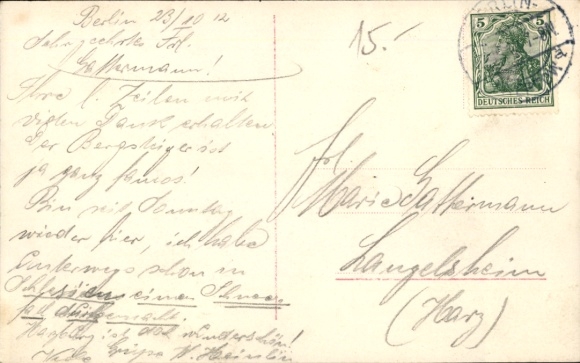 Berlin 23/10 12
Sehr geehrtes Frl.
Gattermann!
Ihre l. Zeilen mit
vielen Dank erhalten
Der Bergsteiger ist
ja ganz famos!
Bin seit Sonntag
wieder hier, ich habe
unterwegs schon in
Schlesien einen Schnee
ist doch wunderschön!
15.-
5 5
DEUTSCHES REICH
Frl.
Marie Gattermann
Langelsheim
(Harz)